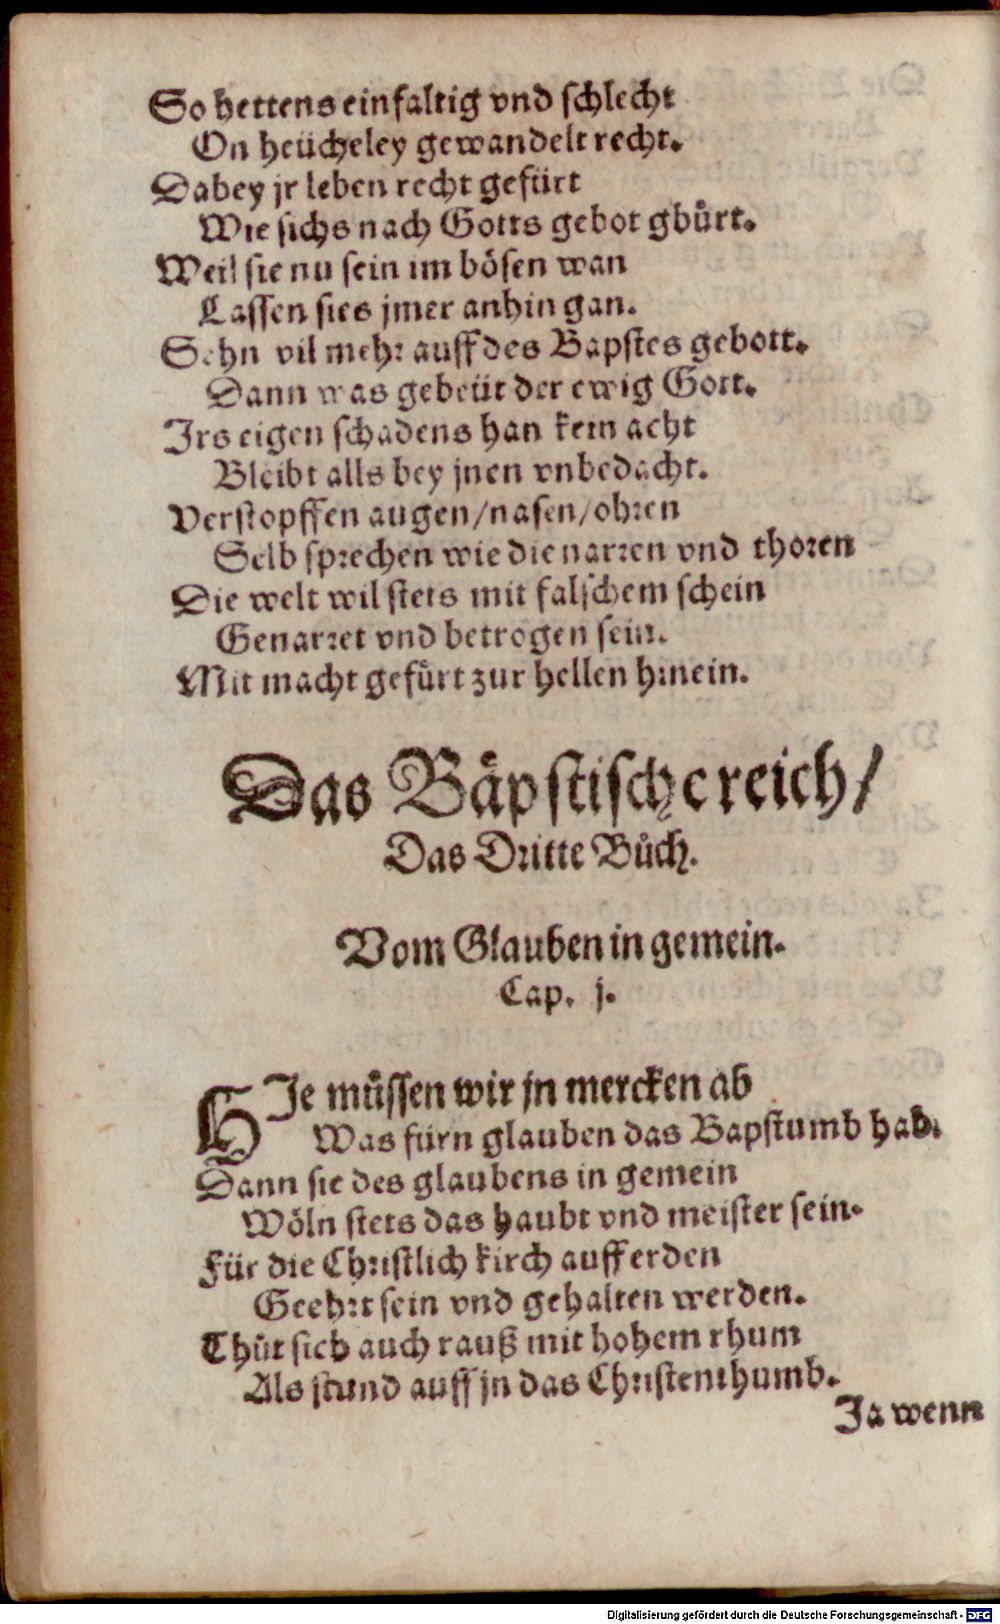 So hettens einfaltig vnd schlecht
On heücheley gewandelt recht.
Dabey jr leben recht gefürt
Wie sichs nach Gotts gebot gbürt.
Weil sie nu sein im bösen wan
Lassen sies jmer anhin gan.
Sehn vil mehr auff des Bapstes gebott.
Dann was gebeüt der ewig Gott.
Irs eigen schadens han kein acht
Bleibt alls bey jnen vnbedacht.
Verstopffen augen/nasen/ohren
Selb sprechen wie die narren vnd thoren
Die welt wil stets mit falschem schein
Genarret vnd betrogen sein.
Mit macht gefürt zur hellen hinein.
Das Bäpstische reich/
Das Dritte Bůch.
Vom Glauben in gemein.
Cap. j.
HIe müssen wir jn mercken ab
Was fürn glauben das Bapstumb hab.
Dann sie des glaubens in gemein
Wöln stets das haubt vnd meister sein.
Für die Christlich kirch auff erden
Geehrt sein vnd gehalten werden.
Thůt sich auch rauß mit hohem rhum
Als stund auff jn das Christenthumb.
Ja wenn
Digitalisierung gefördert durch die Deutsche Forschungsgemeinschaft - DFG